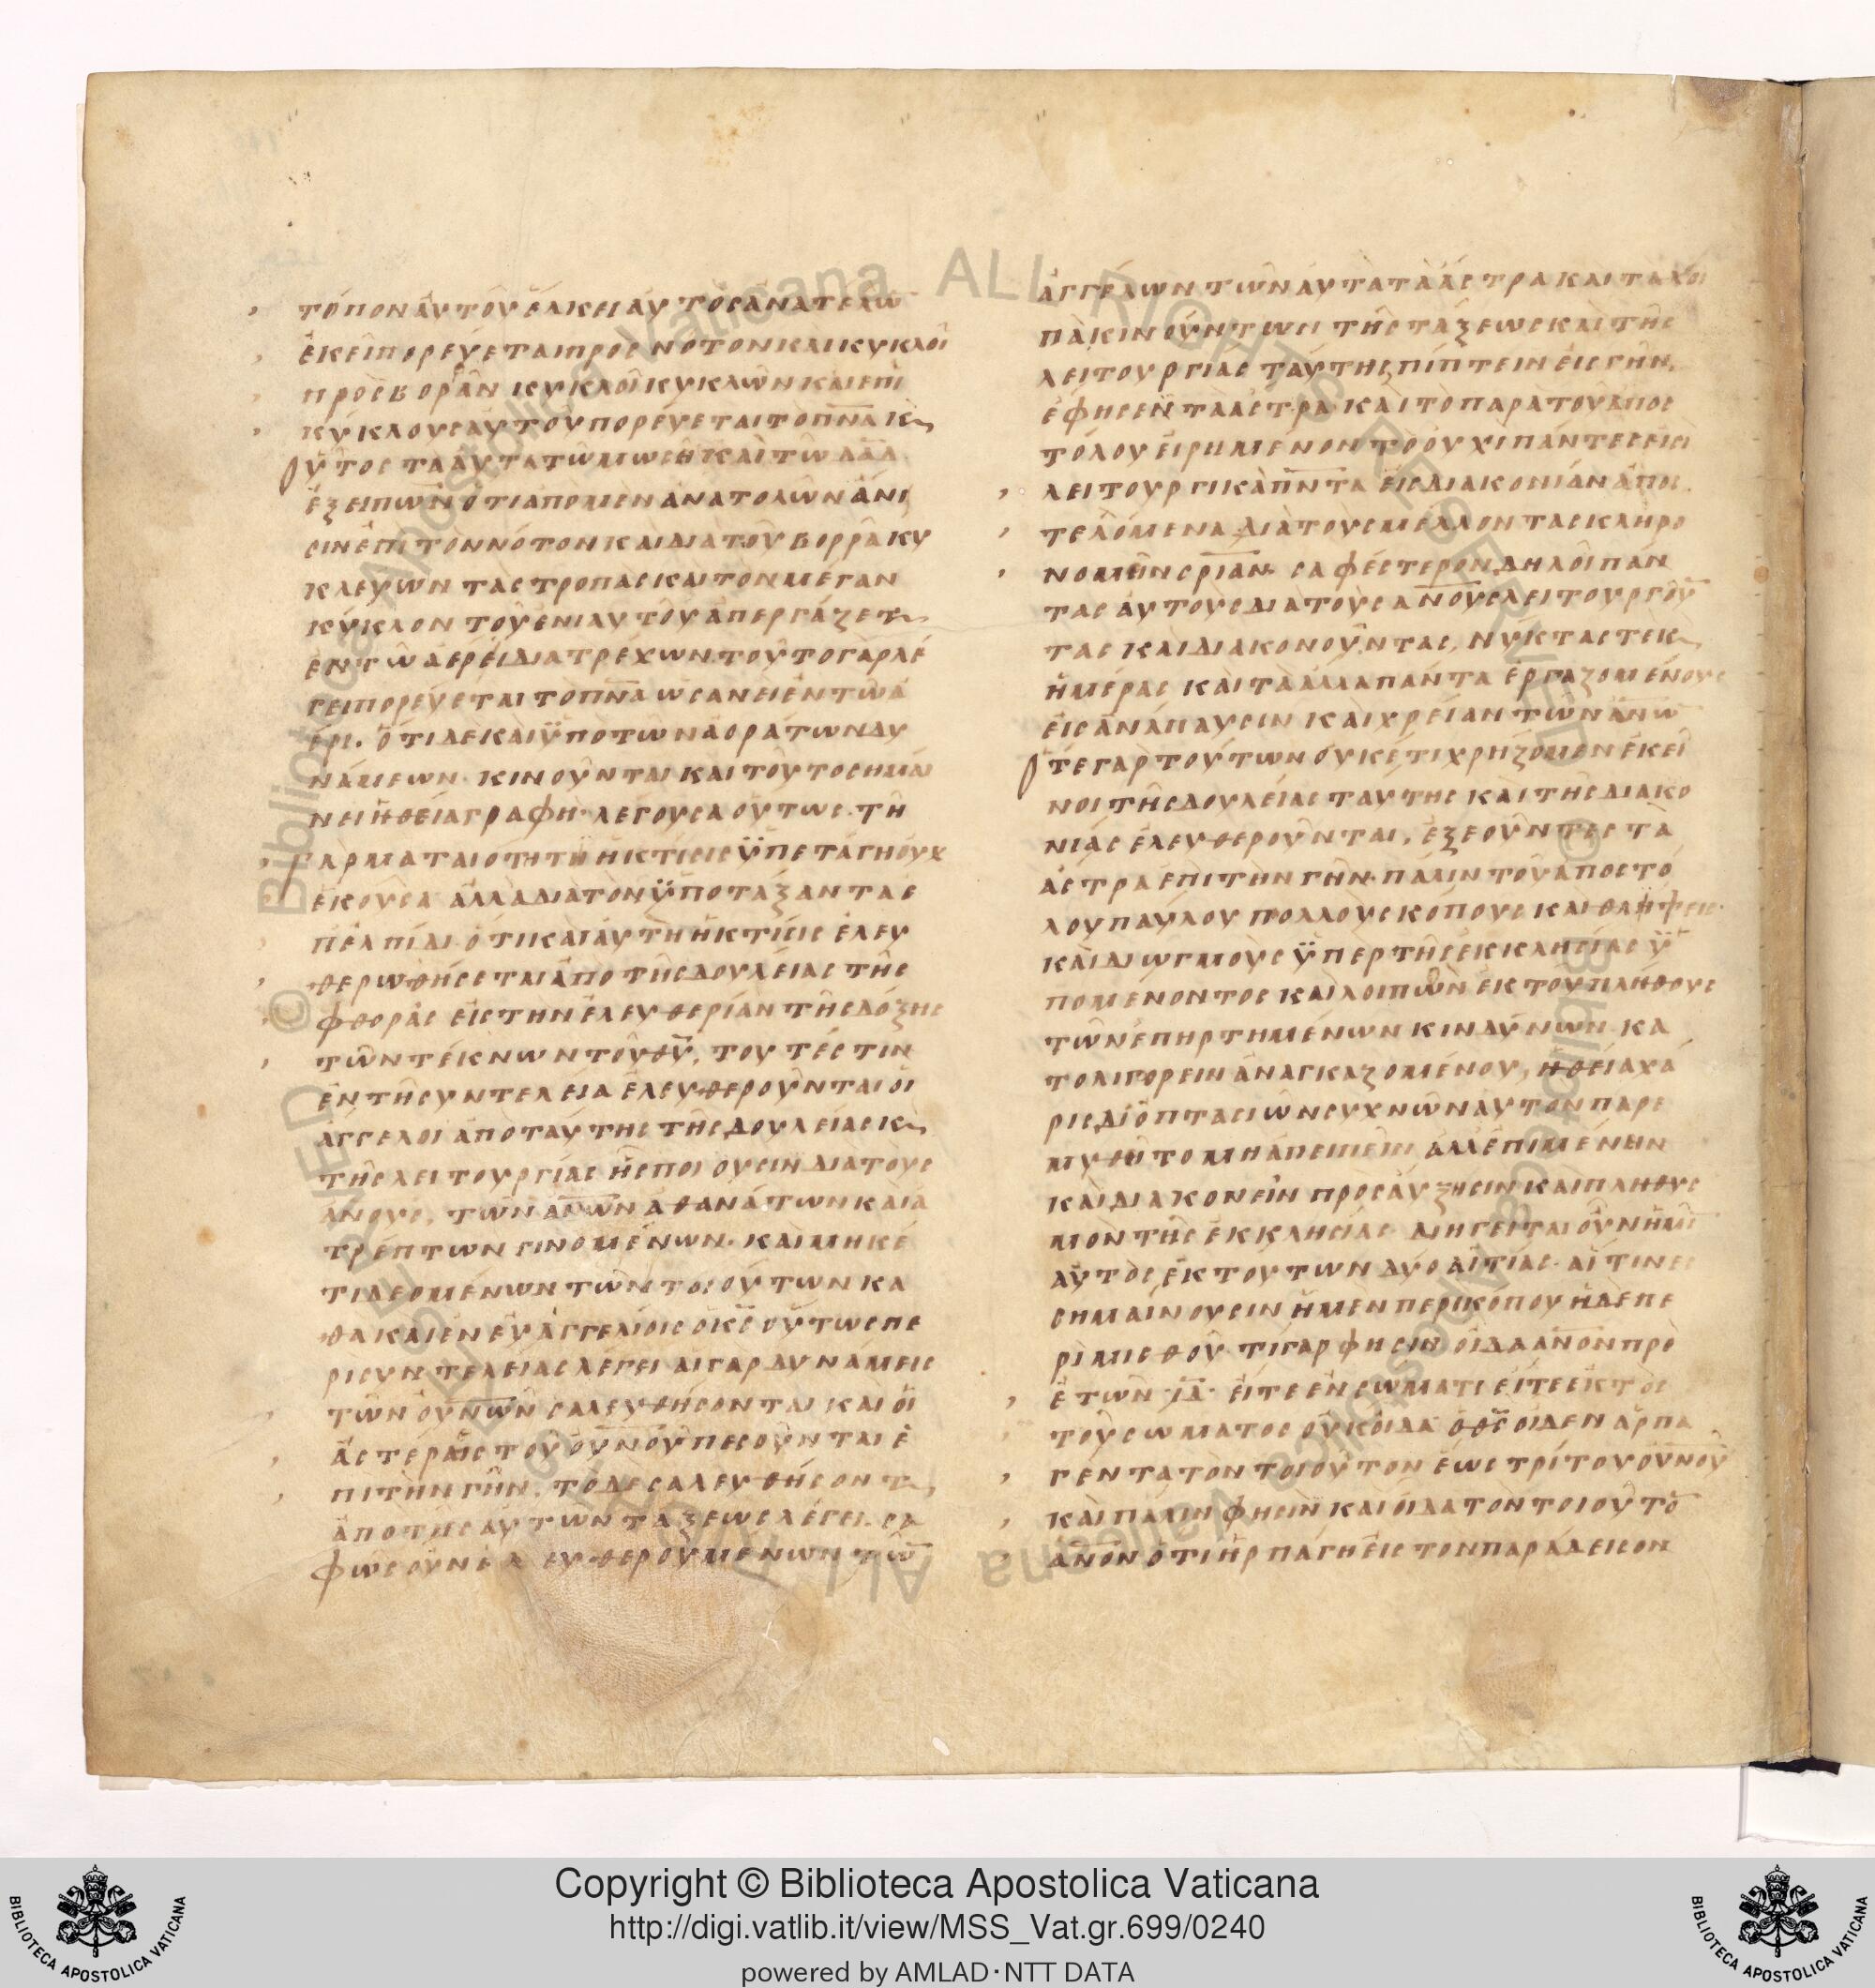 τόπον ἀυτοῦ ἕλκει ἀυτὸς ἀνατέλλω̅
ἐκεῖ πορέυεται προς νοτον και κυκλοῖ
πρὸς βορρᾶν κυκλοῖ κυκλῶν και επι
κύκλους ἀυτου πορέυεται το π̅ν̅α κ̀
ὅυτος τα ἀυτα τῶ μωσῆ καὶ τῶ δ̅α̅δ
ἐξειπὼν ὅτι ἀπο μὲν ἀνατολῶν ἄνι
σιν ἐπὶ τὸν νότον και διὰ του βορρᾶ κυ
κλεύων τας τροπας και τον μέγαν
κύκλον τοῦ ἐνιαυτοῦ ἀπεργάζεται
ἐν τῶ ἀέρει διατρέχων. τοῦτο γὰρ λέ
γει πορέυεται το π̅ν̅α ὡς ανει ἐν τῶ ἀ
έρι. ὅτι δὲ καὶ ϋπὸ τῶν ἀοράτων δυ
νάμεων κινοῦνται και τοῦτο σημαι
νει ἡ θεία γραφή· λέγουσα οὕτως· τῆ
γὰρ ματαιότητι ἡ κτίσις ϋπετάγη ὀυχ
ἑκοῦσα ἀλλα διὰ τὸν ϋποτάξαντα ε
π ἐλπίδι ὅτι και ἀυτὴ ἡ κτίσις ἐλευ
θερωθήσεται ἀπὸ τῆς δουλείας τῆς
φθορᾶς εἰς τὴν ἐλευθερίαν τῆς δόξης
τῶν τέκνων τοῦ θ̅υ̅, τουτέστιν
ἐν τῆ συντελεία ἐλευθεροῦνται ὁι
ἄγγελοι ἀπὸ ταύτης τῆς δουλείας κ̀
τῆς λειτουργίας ἧς ποιουσιν διὰ τοὺς
α̅ν̅ο̅υ̅ς, τῶν α̅ν̅ω̅ν ἀθανάτων και ἀ
τρέπτων γινομένων. και μηκέ
τι δεομένων τῶν τοιούτων κα
θὰ και ἐν ἐυἀγγελίοις ὁ κ̅ς̅ οὕτως πε
ρι συντελείας λέγει αἱ γαρ δυνάμεις
τῶν ὀυ̅ν̅ω̅ν σαλευθήσονται και ὁι
ἀστέρες τοῦ ὀυ̅ν̅ο̅υ̅ πεσοῦνται ἐ
πὶ τὴν γῆν. τὸ δὲ σαλευθήσονται
ἀπὸ τῆς ἀυτῶν τάξεως λέγει. σα
φῶς οὖν ἐλευθερουμένων τῶ̅
ἀγγέλων τῶν ἀυτὰ τὰ ἄστρα και τὰ λοι
πὰ κινούντων τῆς τάξεως και τῆς
λειτουργίας ταύτης πίπτειν εἰς γῆν,
ἔφησεν τὰ ἄστρα· και τὸ παρὰ τοῦ ἀπος
τόλου εἰρημένον τὸ ὀυχὶ πάντες εἰσὶ
λειτουργικὰ π̅ν̅τα εἰς διακονίαν ἀπος
τελόμενα διὰ τοὺς μέλλοντας κληρο
νομῆν σ̅ρ̅ι̅αν· σαφέστερον δηλοῖ πάν
τας ἀυτοὺς διὰ τοὺς α̅ν̅ο̅υ̅ς λειτουργοῦ̅
τας και διακονοῦντας, νύκτας τε κ̀
ἡμέρας και τὰ ἄλλα πάντα ἐργαζομένους
εἰς ἀνάπαυσιν και χρείαν τῶν α̅ν̅ω̅
ὅτε γαρ τούτων ὀυκέτι χρήζομεν ἐκεῖ
νοι τῆς δουλείας ταύτης και τῆς διακο
νίας ἐλευθεροῦνται, ἐξεοῦντες τὰ
ἄστρα ἐπὶ τὴν γῆν· πάλιν τοῦ ἀποστό
λου παύλου πολλοὺς κόπους και θλήψεις
και διωγμοὺς ϋπὲρ τῆς ἐκκλησίας ϋ
πομένοντος και λοιπὸν ἐκ τοῦ πλήθους
τῶν ἐπηρτημένων κινδύνων κα
τολιγορεῖν ἀναγκαζομένου, ἡ θεία χά
ρις δι ὀπτασιῶν συχνῶν ἀυτὸν παρε
μυθῆτο μὴ ἀπειπεῖν ἀλλ ἐπιμένην
και διακονεῖν προς ἀύξησιν και πληθυς
μὸν τῆς ἐκκλησίας· διηγεῖται οὖν ἡμῖ̅
ἀυτὸς ἐκ τούτων δύο αἰτίας· αἵτινες
σημαίνουσιν ἡ μὲν περι κόπου ἡ δὲ πε
ρὶ μισθοῦ· τί γάρ φησιν ὀῖδα α̅ν̅ο̅ν πρὸ
ἐτῶν ι̅δ̅· εἴτε ἐν σώματι εἴτε ἐκτὸς
τοῦ σώματος ὀυκ ὀῖδα ὁ θ̅ς̅ ὀῖδεν ἁρπα
γέντα τὸν τοιοῦτον ἕως τρίτου ὀυ̅ν̅ο̅υ̅
και πάλιν φησὶν και ὀῖδα τὸν τοιοῦτο̅
α̅ν̅ο̅ν ὅτι ἡρπάγη εἰς τὸν παράδεισον
Copyright © Biblioteca Apostolica Vaticana
http://digi.vatlib.it/view/MSS_Vat.gr.699/0240
powered by AMLAD·NTT DATA
BIBLIOTECA APOSTOLICA VATICANA
BIBLIOTECA APOSTOLICA VATICANA